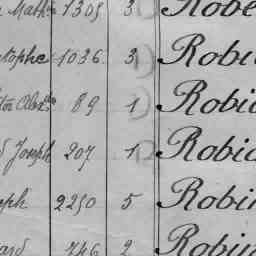 Math 7303 3 Robe
stophe 1036 3 Robi
89 1 Robi
Joseph 207 1 Robi
seph 2250 5 Robin
ard 746 2 Robin